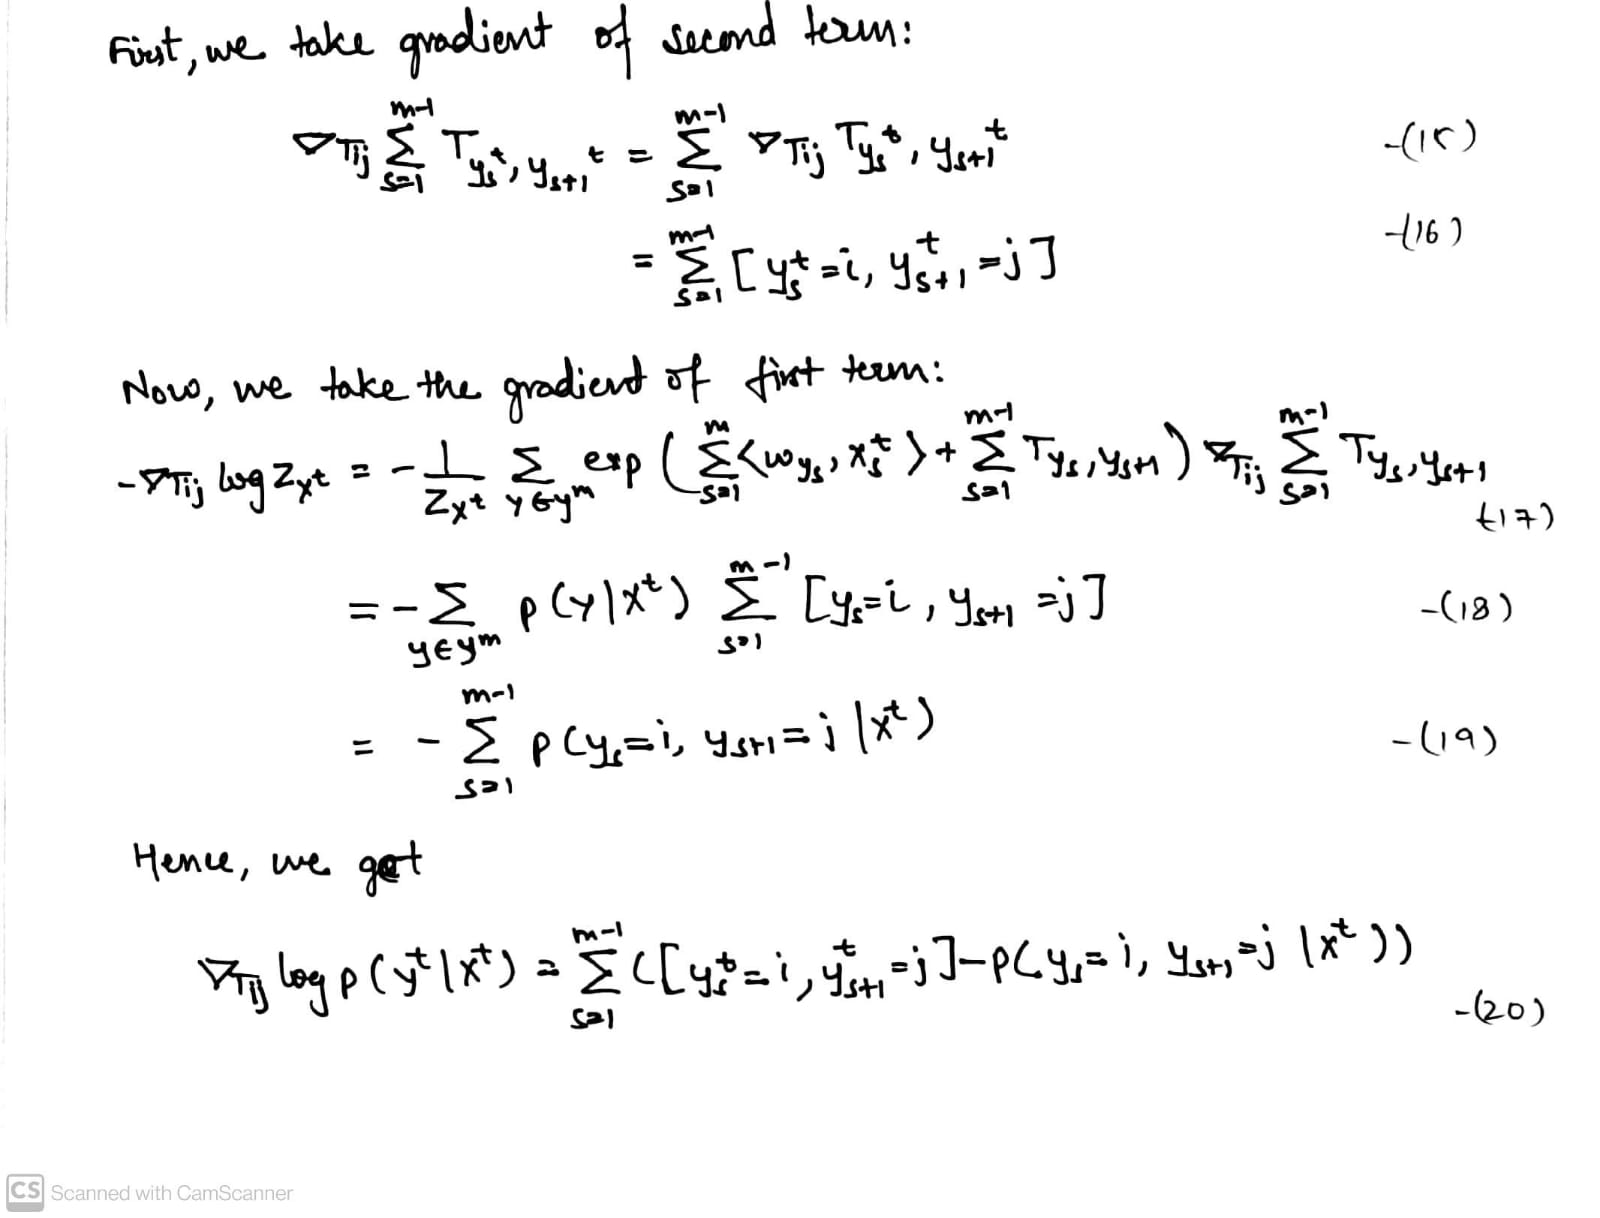 First, we take gradient of second term:
∇T_{ij} Σ_{s=1}^{m-1} T_{y_s^t, y_{s+1}^t} = Σ_{s=1}^{m-1} ∇T_{ij} T_{y_s^t, y_{s+1}^t} -(15)
= Σ_{s=1}^{m-1} [y_s^t = i, y_{s+1}^t = j] -(16)
Now, we take the gradient of first term:
-∇T_{ij} log Z_{x^t} = - 1/Z_{x^t} Σ_{y∈y^m} exp ( Σ_{s=1}^{m} <w_{y_s}, x_s^t> + Σ_{s=1}^{m-1} T_{y_s, y_{s+1}} ) ∇T_{ij} Σ_{s=1}^{m-1} T_{y_s, y_{s+1}} -(17)
= - Σ_{y∈y^m} p(y|x^t) Σ_{s=1}^{m-1} [y_s = i, y_{s+1} = j] -(18)
= - Σ_{s=1}^{m-1} p(y_s = i, y_{s+1} = j | x^t) -(19)
Hence, we get
∇T_{ij} log p(y^t | x^t) = Σ_{s=1}^{m-1} ([y_s^t = i, y_{s+1}^t = j] - p(y_s = i, y_{s+1} = j | x^t)) -(20)
CS Scanned with CamScanner